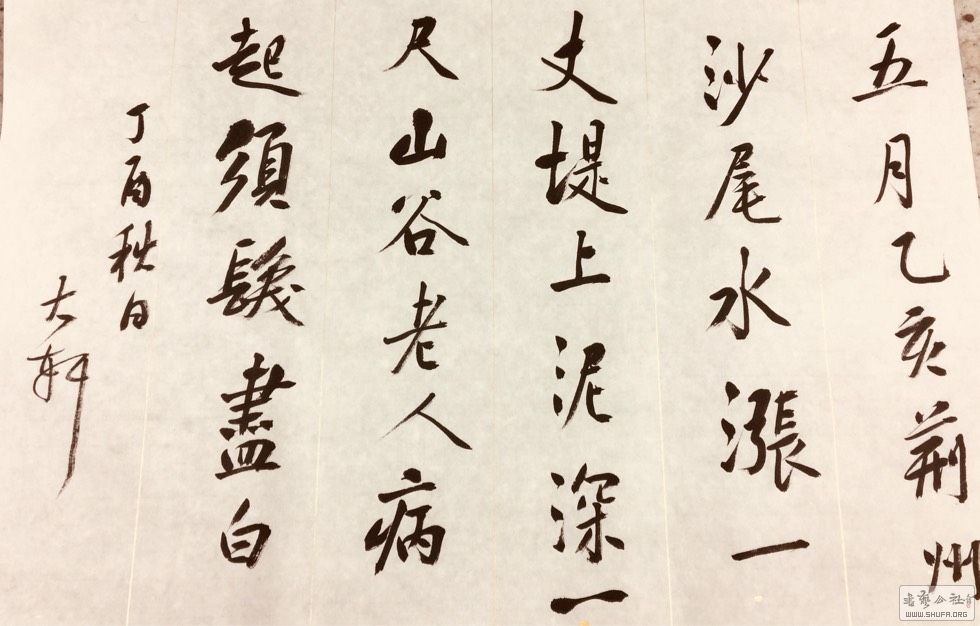 五月乙亥荆州
沙尾水漲一
丈堤上泥深一
尺山谷老人病
起須髮盡白
丁酉秋日
大軒
書藝公社
WWW.SHUFA.ORG